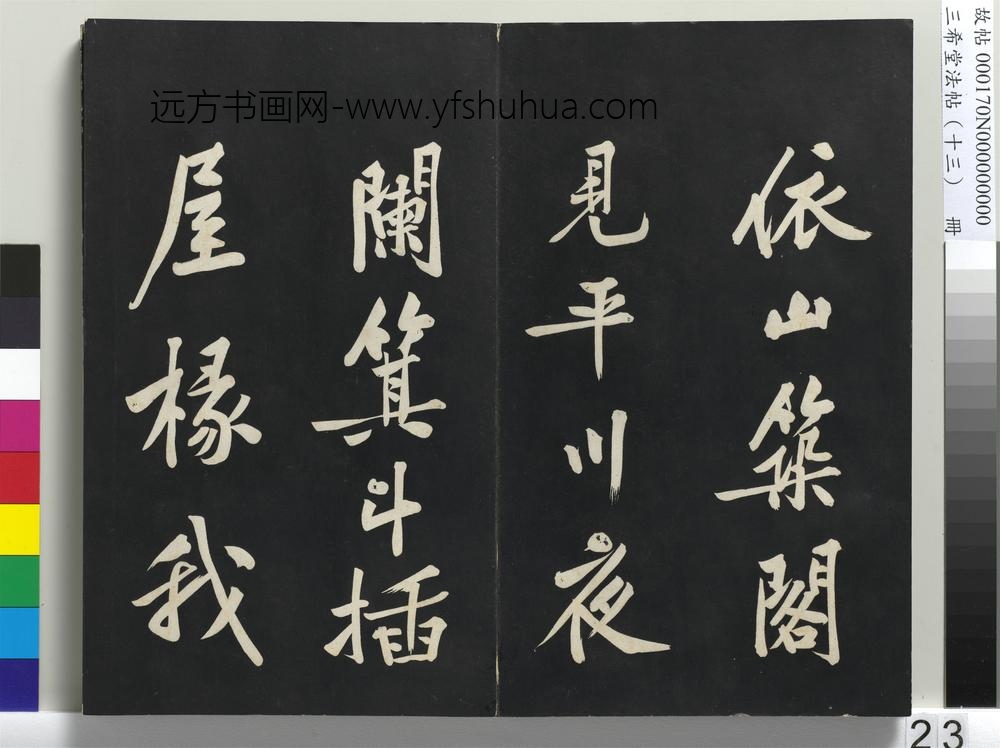 依山築閣
見平川夜
闌箕斗插
屋椽我
远方书画网-www.yfshuhua.com
故帖 000170N000000000
三希堂法帖（十三） 冊
23